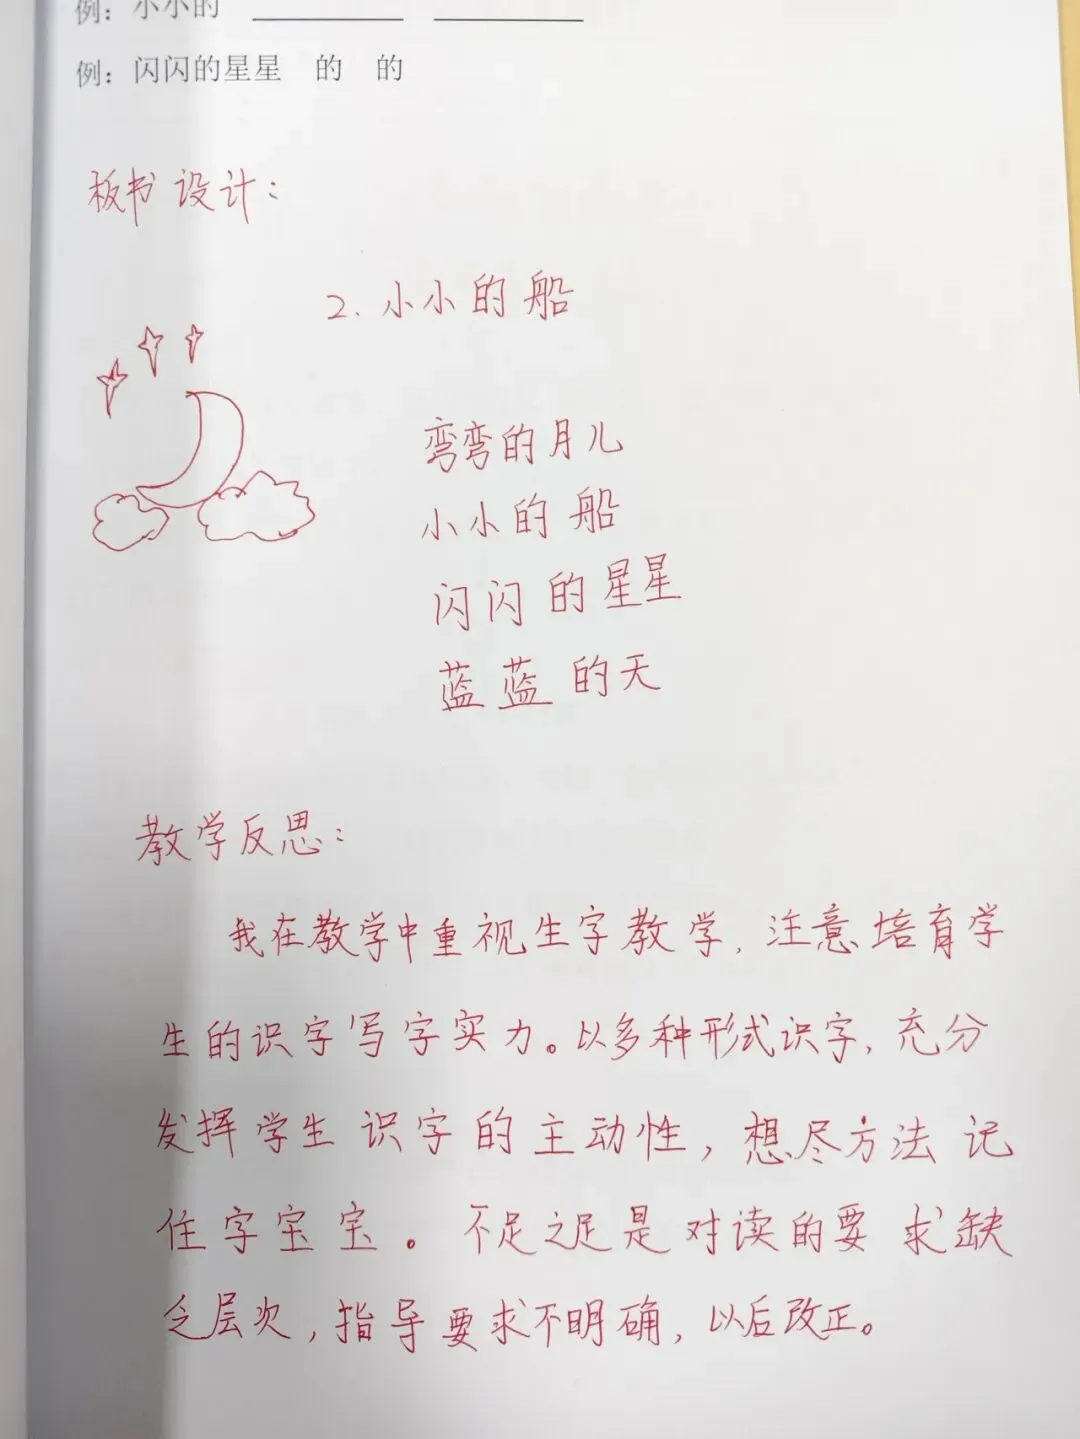 例：小小的 ＿＿＿＿＿ ＿＿＿＿＿
例：闪闪的星星 的 的
板书设计：
2.小小的船
弯弯的月儿
小小的船
闪闪的星星
蓝蓝的天
教学反思：
我在教学中重视生字教学，注意培育学
生的识字写字实力。以多种形式识字，充分
发挥学生识字的主动性，想尽方法记
住字宝宝。不足之足是对读的要求缺
乏层次，指导要求不明确，以后改正。